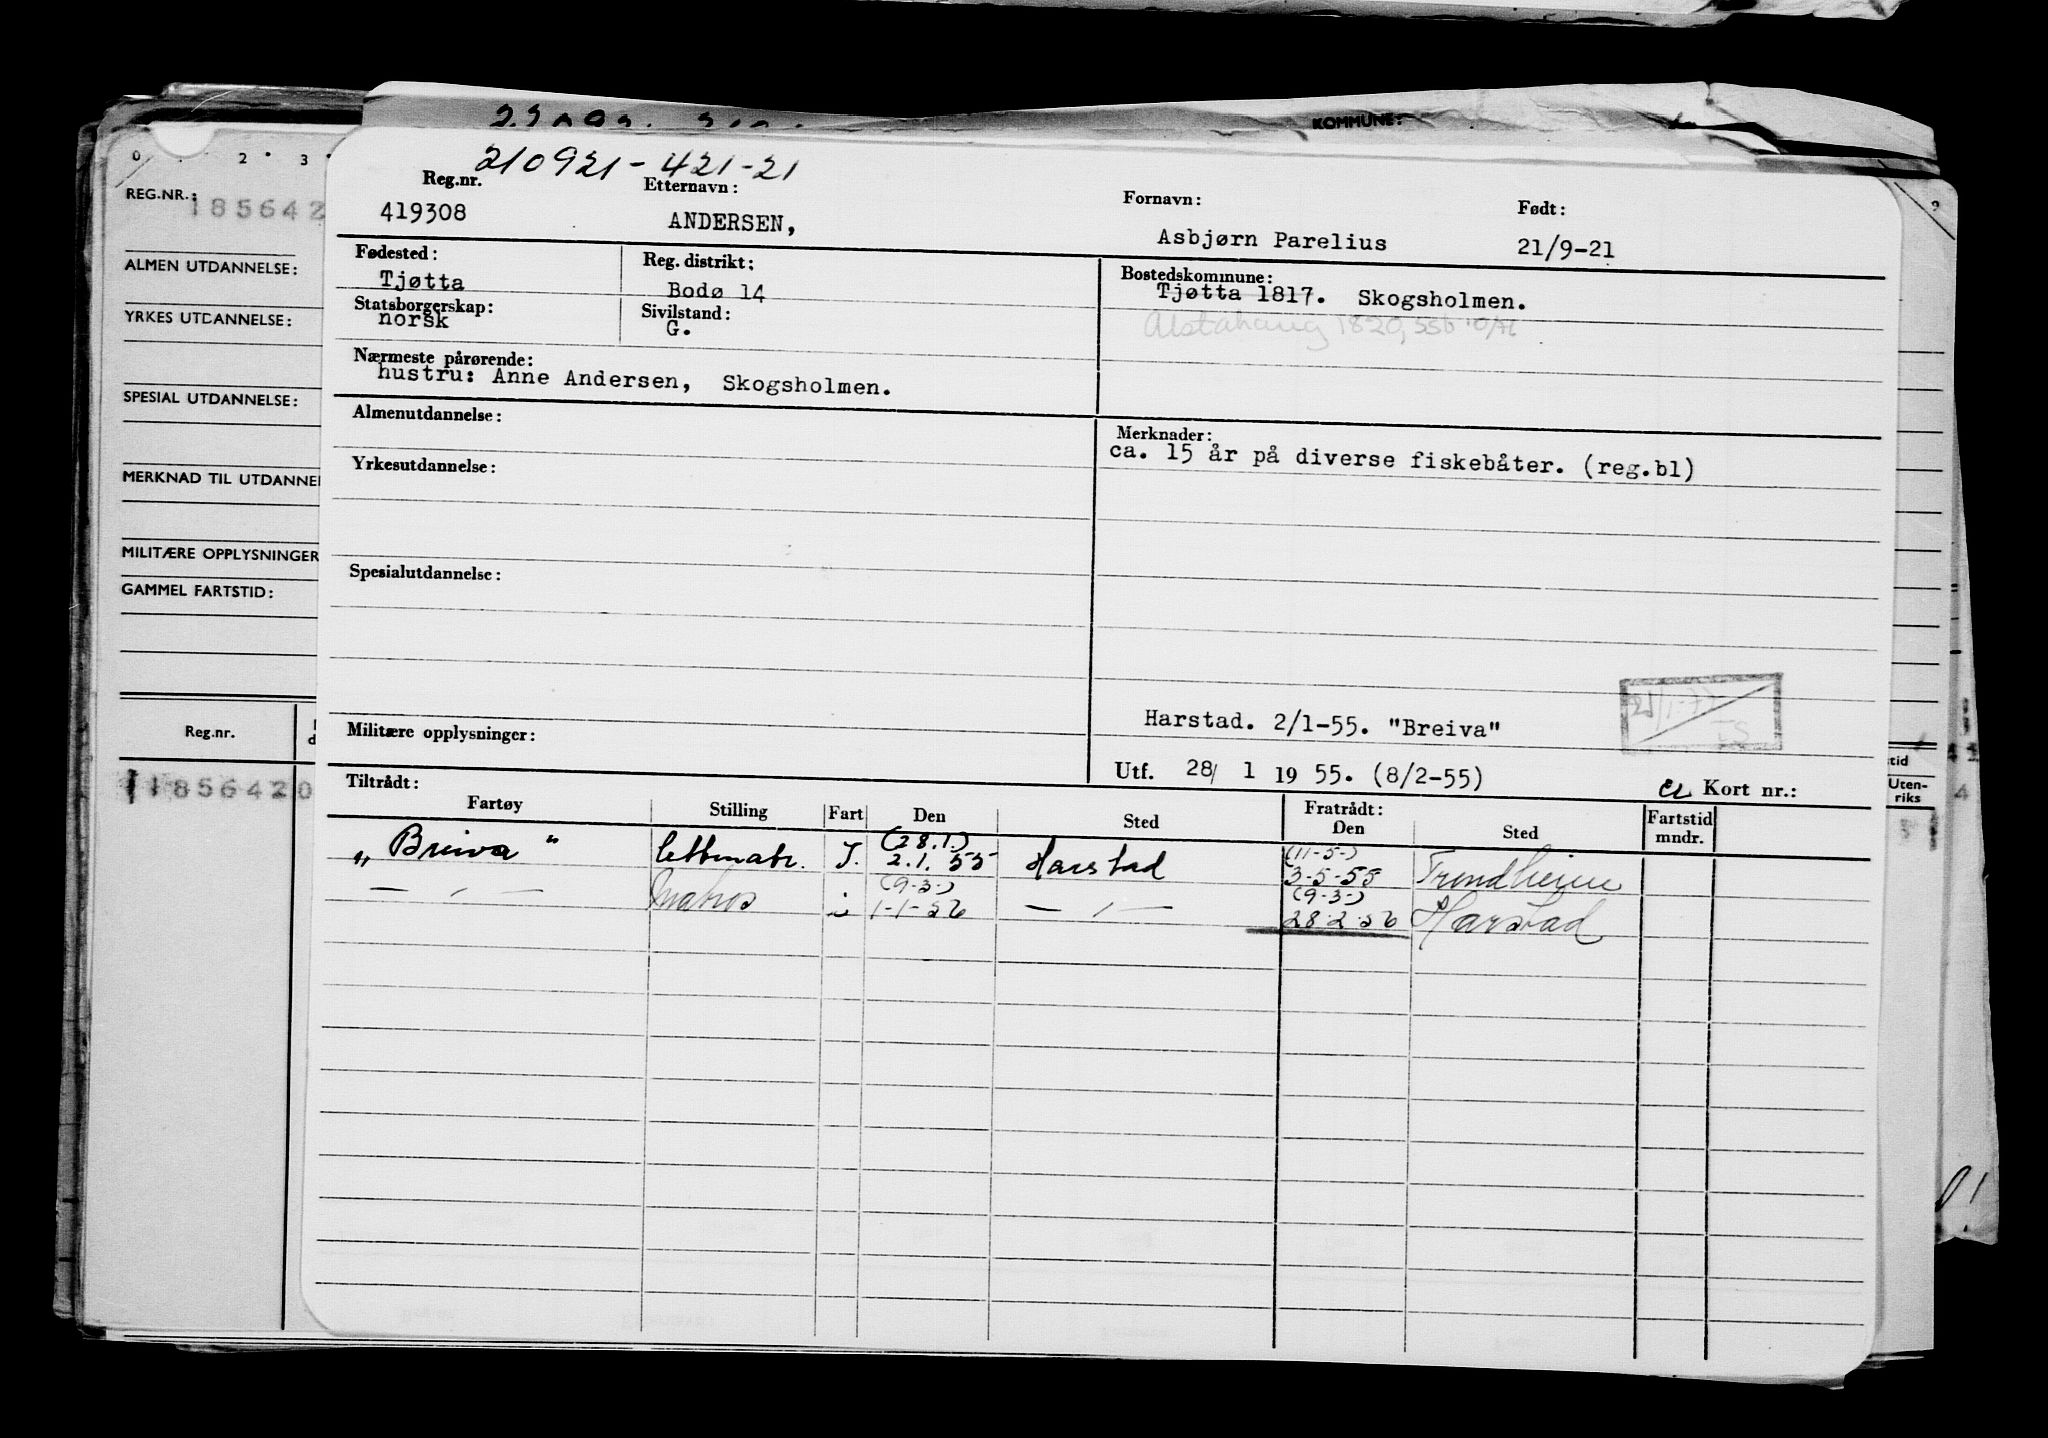 KOMMUNE:
0 2 3
210921-421-21
REG.NR.: 185642
Reg.nr. Etternavn: Fornavn: Født:
419308 ANDERSEN, Asbjørn Parelius 21/9-21
ALMEN UTDANNELSE:
YRKES UTDANNELSE:
SPESIAL UTDANNELSE:
MERKNAD TIL UTDANNEL
MILITÆRE OPPLYSNINGER
GAMMEL FARTSTID:
Reg.nr.
1856420
Fødested: Reg. distrikt: Bostedskommune:
Tjøtta Bodø 14 Tjøtta 1817. Skogsholmen.
Statsborgerskap: Sivilstand:
norsk G. Alstahaug 1820,
Nærmeste pårørende:
hustru: Anne Andersen, Skogsholmen.
Almenutdannelse: Merknader:
ca. 15 år på diverse fiskebåter. (reg.bl)
Yrkesutdannelse:
Spesialutdannelse:
Harstad. 2/1-55. "Breiva"
Militære opplysninger:
Utf. 28/ 1 19 55. (8/2-55) Kort nr.:
Tiltrådt: Fratrådt:
Fartøy Stilling Fart Den Sted Den Sted Fartstid mndr.
(28.1.) (11-5-)
„Breiva" lettmatr. I. 2.1.55 Harstad 3-5-55 Trondheim
(9-3-) (9-3-)
— „ — Matros i 1-1-56 — „ — 28.2.56 Harstad
tid
Uten-
riks